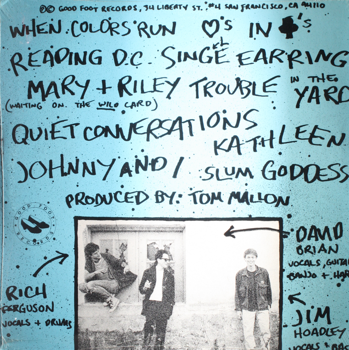 ©℗ GOOD FOOT RECORDS, 74 LIBERTY ST. #4 SAN FRANCISCO, CA 94110
WHEN COLORS RUN ♡'S IN $'S
READING D.C. SINGLE EARRING
MARY + RILEY TROUBLE IN THE YARD
(WAITING ON THE WILD CARD)
QUIET CONVERSATIONS
KATHLEEN
JOHNNY AND I SLUM GODDESS
PRODUCED BY: TOM MALLON
GOOD FOOT
RECORDS
DAVID
BRIAN
VOCALS, GUITAR
BANJO + HAR
RICH
FERGUSON
VOCALS + DRUMS
JIM
HOADLEY
VOCALS + BAS